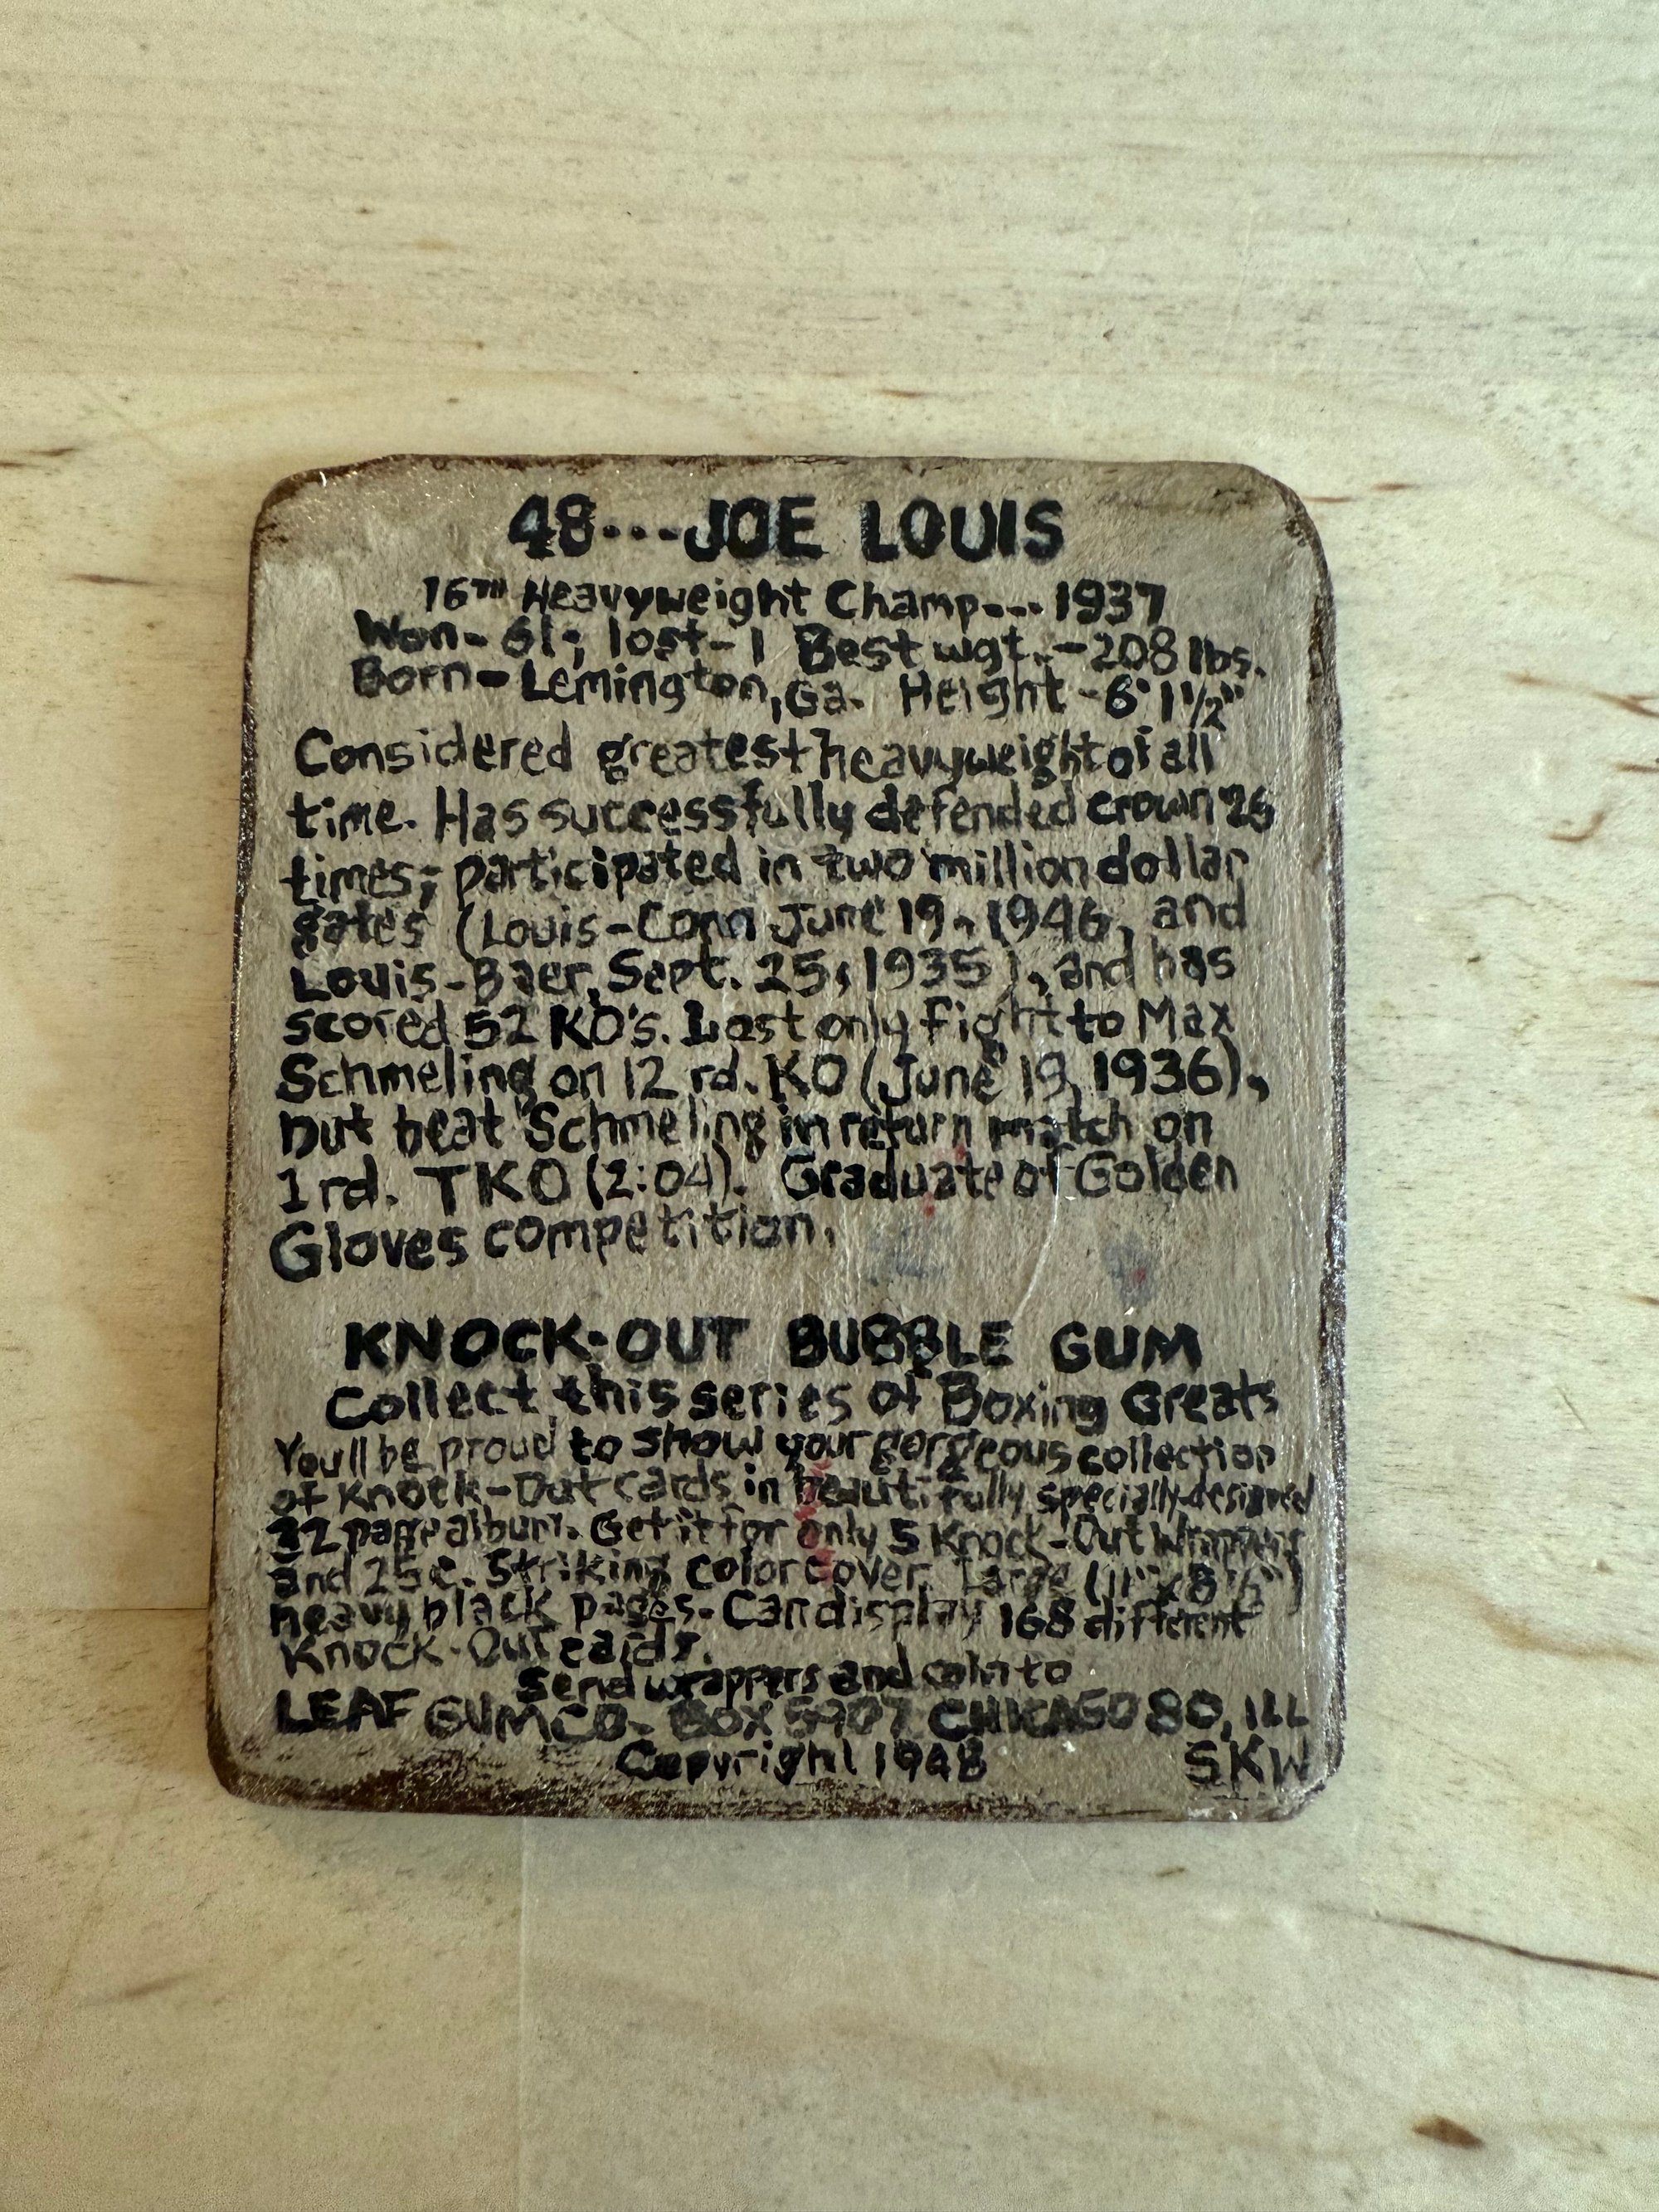 48---JOE LOUIS
16TH Heavyweight Champ--- 1937
Won- 61; lost-1 Best wgt.-208 lbs.
Born-Lemington, Ga. Height-6' 1 1/2"
Considered greatest heavyweight of all
time. Has successfully defended crown 26
times; participated in two million dollar
gates (Louis-Conn June 19, 1946, and
Louis-Baer, Sept. 25, 1935), and has
scored 52 KO's. Lost only fight to Max
Schmeling on 12 rd. KO (June 19, 1936),
but beat Schmeling in return match on
1 rd. TKO (2:04). Graduate of Golden
Gloves competition.
KNOCK-OUT BUBBLE GUM
Collect this series of Boxing Greats
You'll be proud to show your gorgeous collection
of Knock-Out cards in beautifully specially-designed
32 page album. Get it for only 5 Knock-Out Wrappers
and 25¢. Striking color cover. Large (11" x 8 1/2")
heavy black pages. Can display 168 different
Knock-Out cards.
Send wrappers and coin to
LEAF GUM CO. BOX 5907 CHICAGO 80, ILL
Copyright 1948 SKW